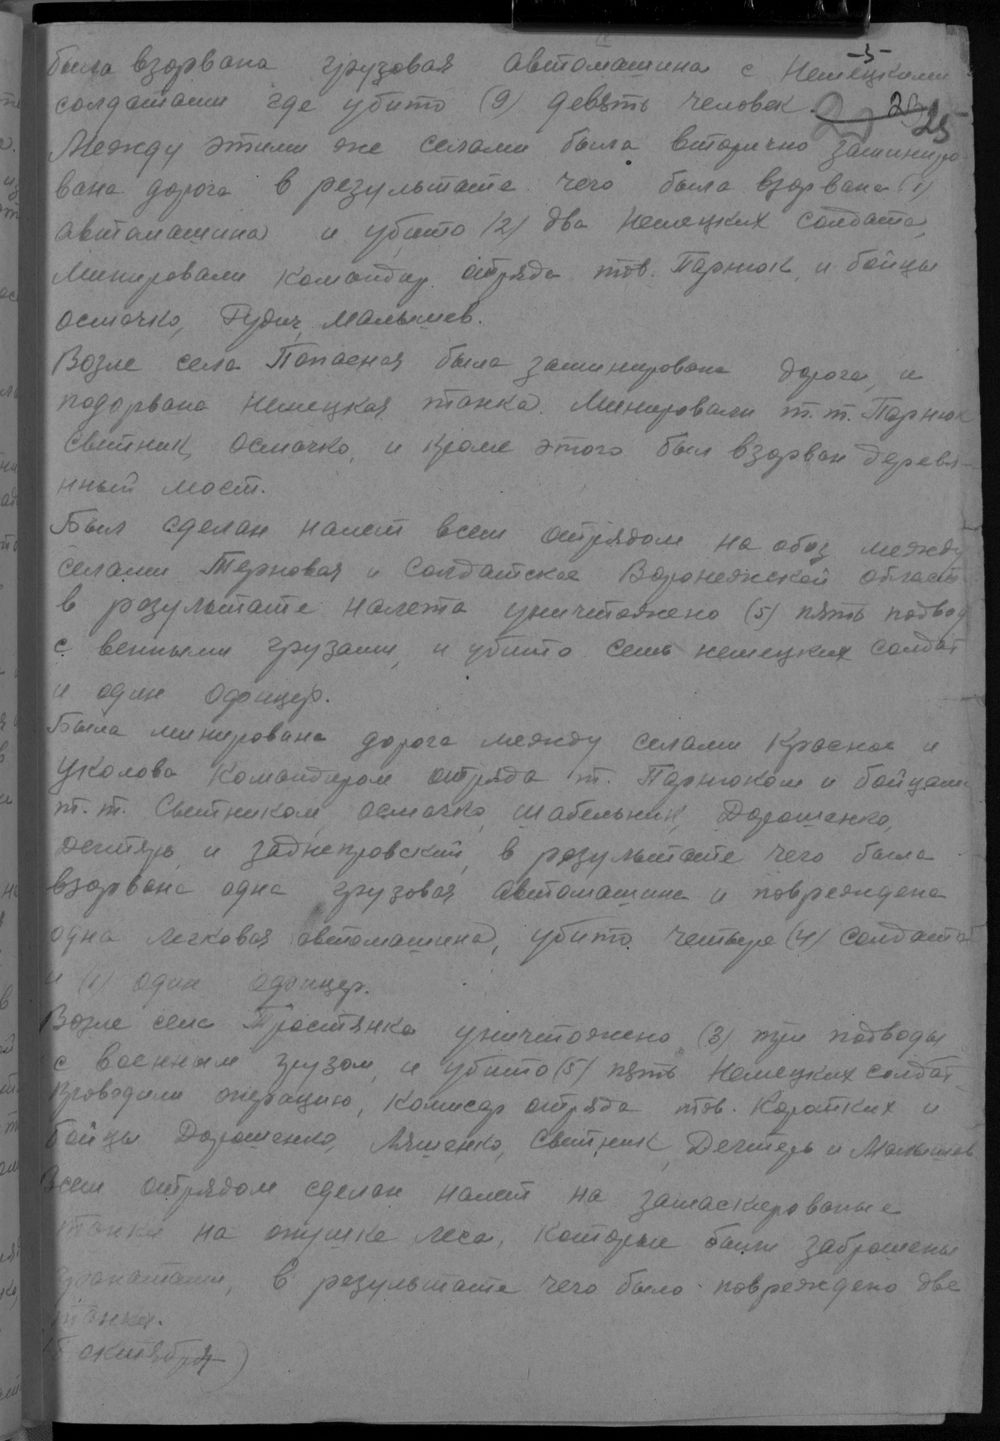 -5-
была взорвана грузовая автомашина с немецкими
солдатами где убито (9) девять человек.
25
Между этими же селами была вторично заминиро-
вана дорога в результате чего была взорвана (1)
автомашина и убито (2) два немецких солдата,
Минировали командир отряда тов. Парнюк и бойцы
Осмачко, Гудич, Малышев.
Возле села Попасная была заминирована дорога, и
подорвана немецкая танка. Минировали т.т. Парнюк
Свитник, Осмачко, и кроме этого был взорван деревя-
нный мост.
Был сделан налет всем отрядом на обоз между
селами Терновая и Солдатское Воронежской област
в результате налета уничтожено (5) пять подвод
с венными грузами, и убито семь немецких солдат
и один офицер.
Была минирована дорога между селами Красное и
Уколова Командиром отряда т. Парнюком и бойцами
т.т. Свитником, Осмачко, Шабельник, Дорошенко,
Дехтярь и Заднепровский, в результате чего была
взорвана одна грузовая автомашина и повреждена
одна легковая автомашина, убито четыре (4) солдата
и (1) один офицер.
Возле села Простянка уничтожено (3) три подводы
с военным грузом, и убито (5) пять немецких солдат
Проводили операцию, комисар отряда тов. Коротких и
бойцы Дорошенко, Ляшенко, Свитник, Дехтерь и Малышев
Всем отрядом сделан налет на замаскированые
танки на опушке леса, которые были заброшены
гранатами, в результате чего было повреждено две
танки.
октября)